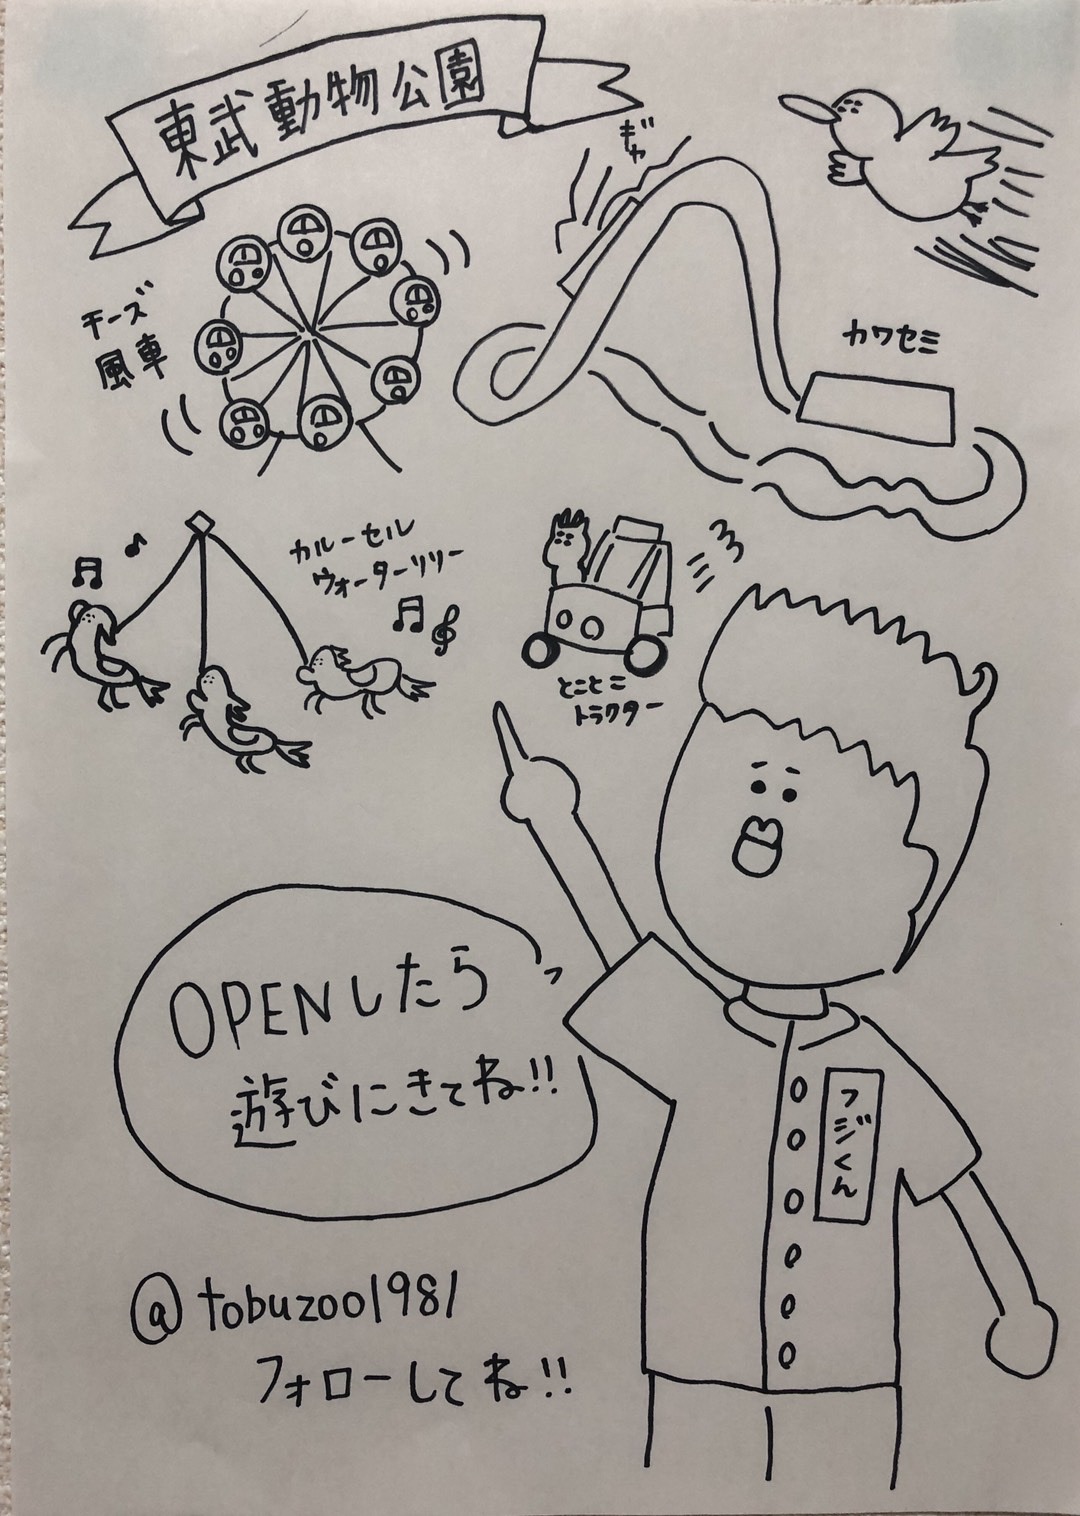 東武動物公園
ギュ
チーズ
風車
カワセミ
カルーセル
ウォーターリリー
とことこ
トラクター
OPENしたら
遊びにきてね!!
フジくん
@tobuzoo1981
フォローしてね!!